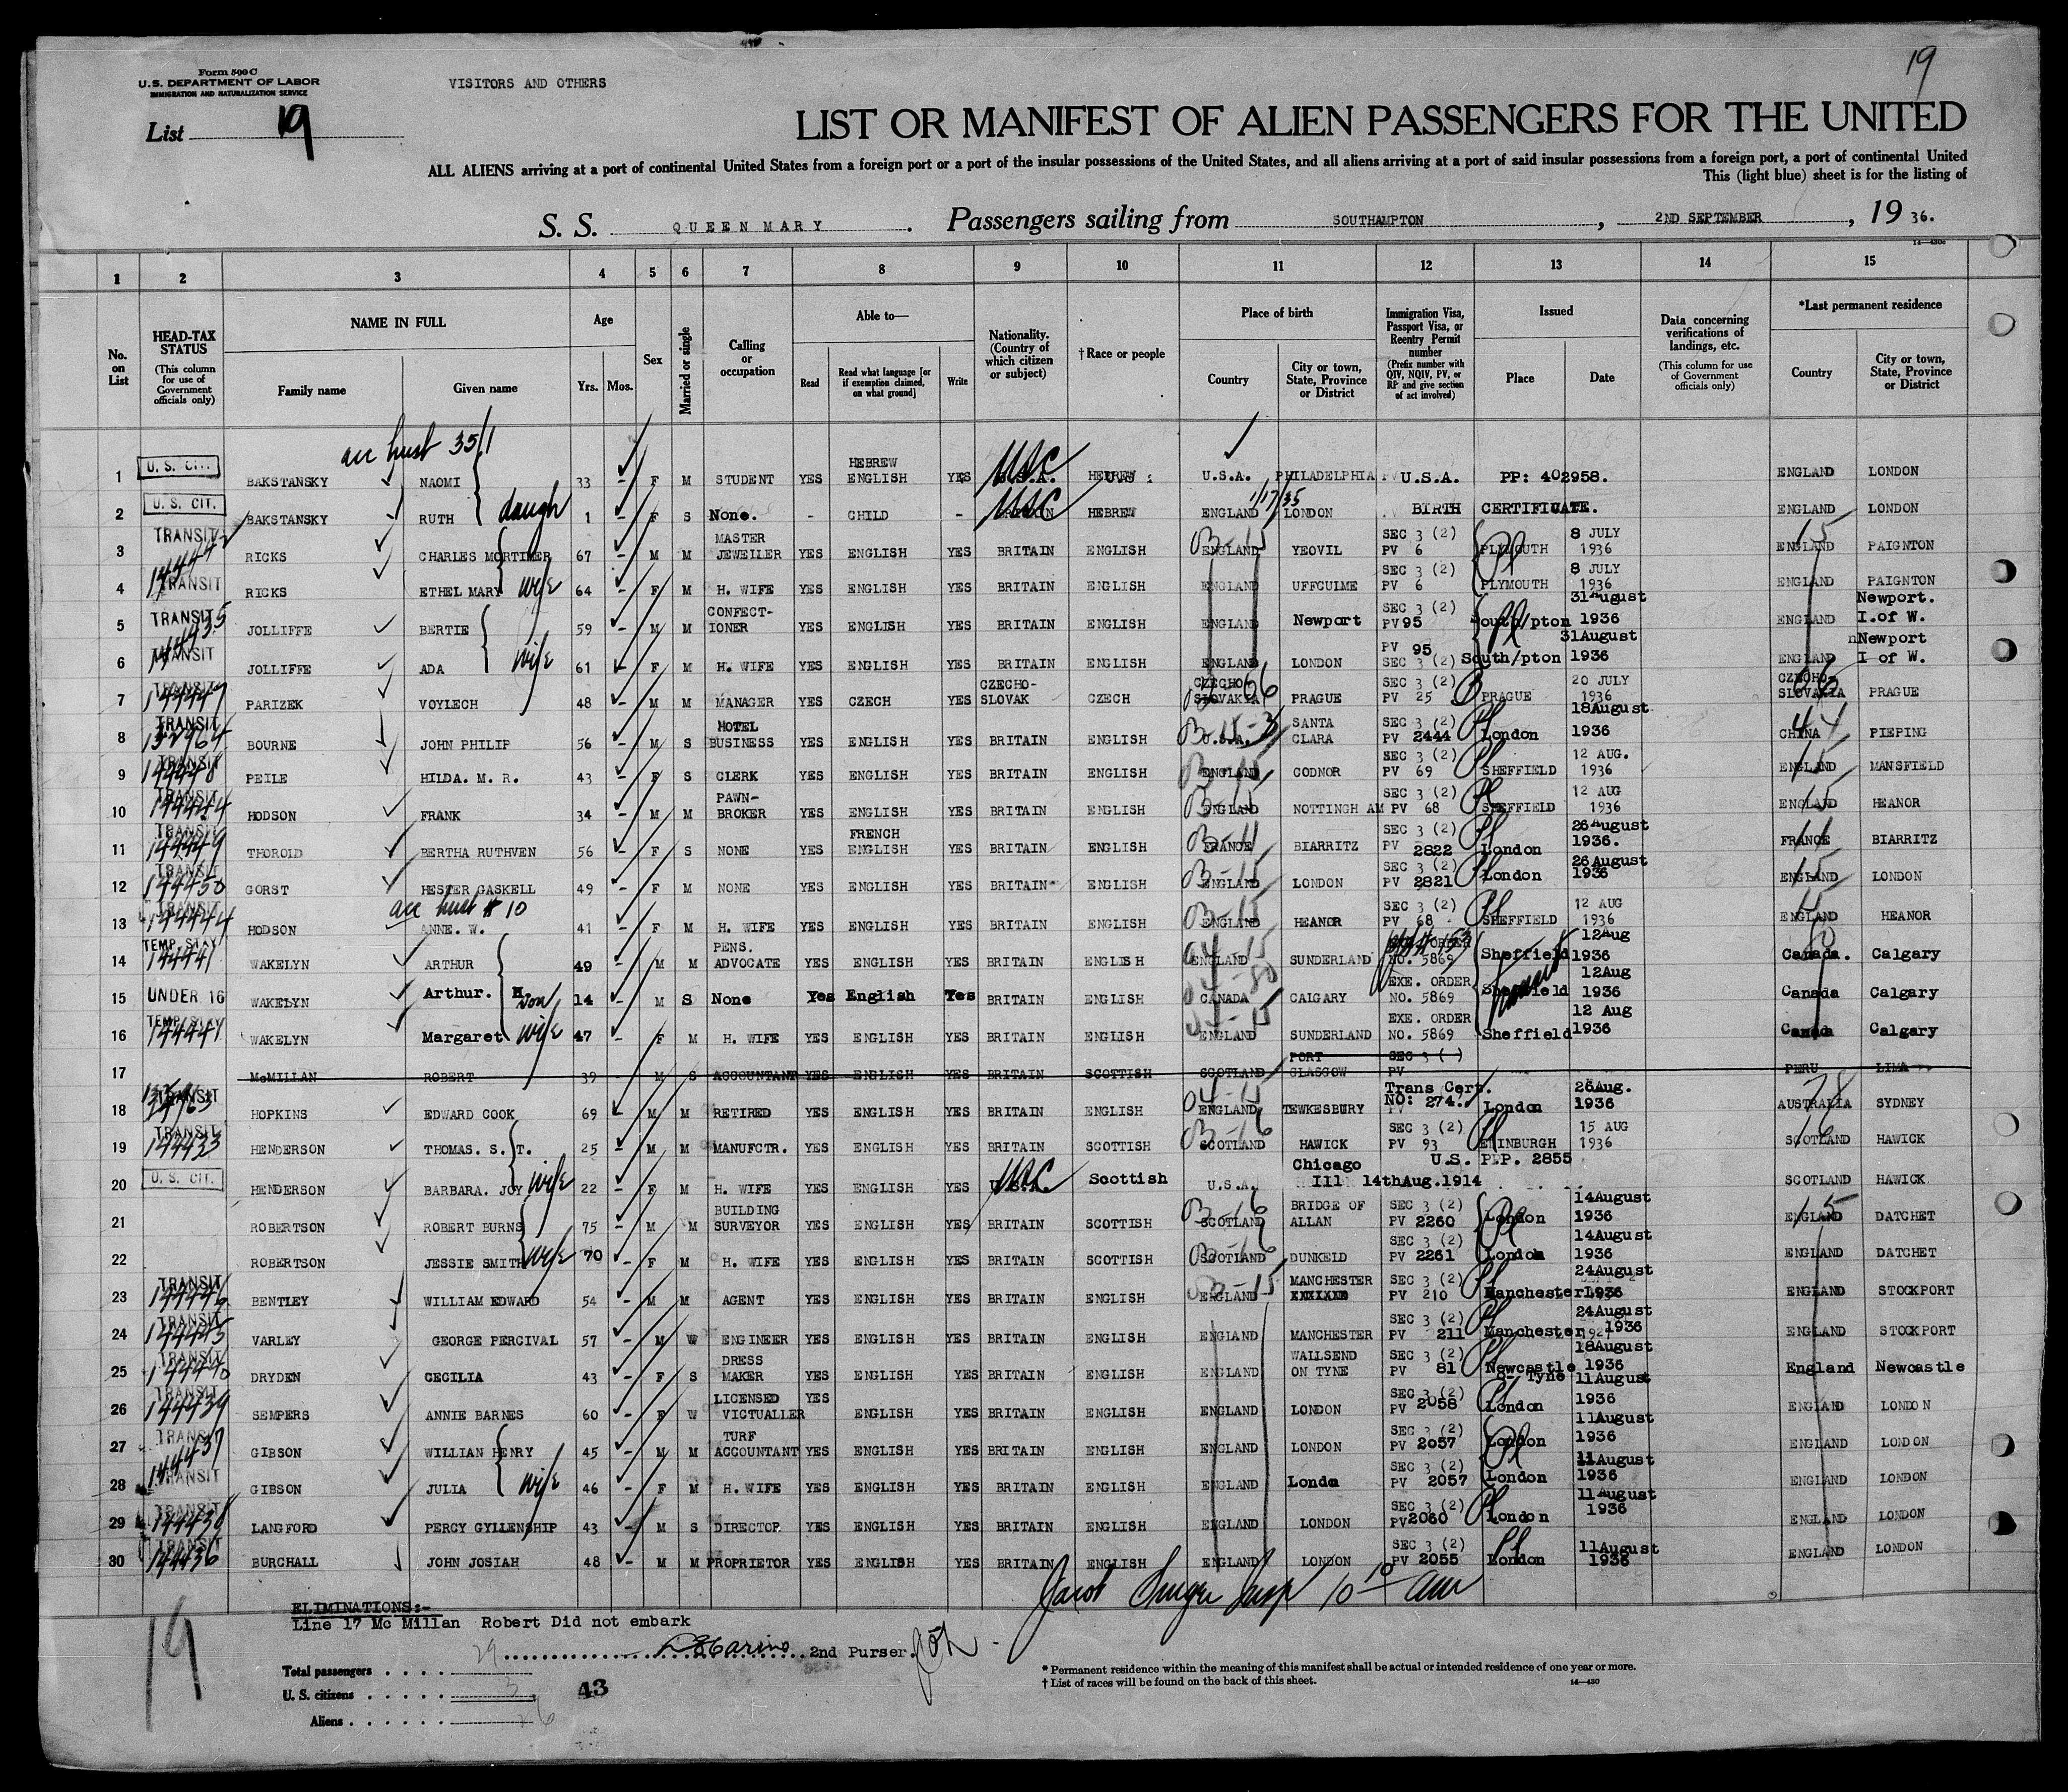 19
Form 500 C
U.S. DEPARTMENT OF LABOR
IMMIGRATION AND NATURALIZATION SERVICE
VISITORS AND OTHERS
List 19
LIST OR MANIFEST OF ALIEN PASSENGERS FOR THE UNITED
ALL ALIENS arriving at a port of continental United States from a foreign port or a port of the insular possessions of the United States, and all aliens arriving at a port of said insular possessions from a foreign port, a port of continental United
This (light blue) sheet is for the listing of
S. S. QUEEN MARY. Passengers sailing from SOUTHAMPTON, 2ND SEPTEMBER, 19 36.
1 2 3 4 5 6 7 8 9 10 11 12 13 14 15
No. on List
HEAD-TAX STATUS
(This column for use of Government officials only)
NAME IN FULL
Family name
Given name
Age
Yrs. Mos.
Sex
Married or single
Calling or occupation
Able to—
Read
Read what language [or if exemption claimed, on what ground]
Write
Nationality. (Country of which citizen or subject)
†Race or people
Place of birth
Country
City or town, State, Province or District
Immigration Visa, Passport Visa, or Reentry Permit number
(Prefix number with QIV, NQIV, PV, or RP and give section of act involved)
Issued
Place
Date
Data concerning verifications of landings, etc.
(This column for use of Government officials only)
*Last permanent residence
Country
City or town, State, Province or District
acc husb 35/1
1 U. S. CIT. BAKSTANSKY NAOMI 33 F M STUDENT YES HEBREW ENGLISH YES USC HEBREW U.S.A. PHILADELPHIA U.S.A. PP: 402958. ENGLAND LONDON
2 U. S. CIT. BAKSTANSKY RUTH daugh 1 F S None. - CHILD - USC HEBREW ENGLAND 1/17/35 LONDON BIRTH CERTIFICATE. ENGLAND LONDON
3 TRANSIT RICKS CHARLES MORTIMER 67 M M MASTER JEWEILER YES ENGLISH YES BRITAIN ENGLISH ENGLAND YEOVIL SEC 3 (2) PV 6 PLYMOUTH 8 JULY 1936 ENGLAND PAIGNTON
4 TRANSIT RICKS ETHEL MARY wife 64 F M H. WIFE YES ENGLISH YES BRITAIN ENGLISH ENGLAND UFFCULME SEC 3 (2) PV 6 PLYMOUTH 8 JULY 1936 ENGLAND PAIGNTON
5 TRANSIT 14435 JOLLIFFE BERTIE 59 M M CONFECT-IONER YES ENGLISH YES BRITAIN ENGLISH ENGLAND Newport SEC 3 (2) PV 95 South/pton 31August 1936 ENGLAND Newport. I.of W.
6 TRANSIT JOLLIFFE ADA wife 61 F M H. WIFE YES ENGLISH YES BRITAIN ENGLISH ENGLAND LONDON PV 95 SEC 3 (2) South/pton 31August 1936 ENGLAND Newport I of W.
7 TRANSIT 144447 PARIZEK VOYLECH 48 M M MANAGER YES CZECH YES CZECHO-SLOVAK CZECH CZECHO-SLOVAKIA PRAGUE SEC 3 (2) PV 25 PRAGUE 20 JULY 1936 CZECHO-SLOVAKIA PRAGUE
8 TRANSIT 132964 BOURNE JOHN PHILIP 56 M S HOTEL BUSINESS YES ENGLISH YES BRITAIN ENGLISH U.S.A. SANTA CLARA SEC 3 (2) PV 2444 London 18August 1936 CHINA PIEPING
9 TRANSIT 144448 PEILE HILDA. M. R. 43 F S CLERK YES ENGLISH YES BRITAIN ENGLISH ENGLAND CODNOR SEC 3 (2) PV 69 SHEFFIELD 12 AUG. 1936 ENGLAND MANSFIELD
10 TRANSIT 144444 HODSON FRANK 34 M M PAWN-BROKER YES ENGLISH YES BRITAIN ENGLISH ENGLAND NOTTINGH AM SEC 3 (2) PV 68 SHEFFIELD 12 AUG 1936 ENGLAND HEANOR
11 TRANSIT 144449 THOROLD BERTHA RUTHVEN 56 F S NONE YES FRENCH ENGLISH YES BRITAIN ENGLISH FRANCE BIARRITZ SEC 3 (2) PV 2822 London 26August 1936. FRANCE BIARRITZ
12 TRANSIT 144450 GORST HESTER GASKELL 49 F M NONE YES ENGLISH YES BRITAIN ENGLISH ENGLAND LONDON SEC 3 (2) PV 2821 London 26August 1936 ENGLAND LONDON
acc husb # 10
13 TRANSIT 144444 HODSON ANNE. W. 41 F M H. WIFE YES ENGLISH YES BRITAIN ENGLISH ENGLAND HEANOR SEC 3 (2) PV 68 SHEFFIELD 12 AUG 1936 ENGLAND HEANOR
14 TEMP STAY 144441 WAKELYN ARTHUR 49 M M PENS. ADVOCATE YES ENGLISH YES BRITAIN ENGLISH ENGLAND SUNDERLAND NO. 5869 Sheffield 12Aug 1936 Canada. Calgary
15 UNDER 16 WAKELYN Arthur. H. son 14 M S None Yes English Yes BRITAIN ENGLISH CANADA CALGARY EXE. ORDER NO. 5869 Sheffield 12Aug 1936 Canada Calgary
16 TEMP STAY 144441 WAKELYN Margaret wife 47 F M H. WIFE YES ENGLISH YES BRITAIN ENGLISH ENGLAND SUNDERLAND EXE. ORDER NO. 5869 Sheffield 12 Aug 1936 Canada Calgary
17 McMILLAN ROBERT 39 M S ACCOUNTANT YES ENGLISH YES BRITAIN SCOTTISH SCOTLAND PORT GLASGOW SEC 3 ( ) PV PERU LIMA
18 TRANSIT HOPKINS EDWARD COOK 69 M M RETIRED YES ENGLISH YES BRITAIN ENGLISH ENGLAND TEWKESBURY Trans Cert. NO: 274. London 26Aug. 1936 AUSTRALIA SYDNEY
19 TRANSIT 144433 HENDERSON THOMAS. S. T. 25 M M MANUFCTR. YES ENGLISH YES BRITAIN SCOTTISH SCOTLAND HAWICK SEC 3 (2) PV 93 EDINBURGH 15 AUG 1936 SCOTLAND HAWICK
20 U. S. CIT. HENDERSON BARBARA. JOY wife 22 F M H. WIFE YES ENGLISH YES USC Scottish U.S.A. Chicago Ill 14thAug.1914 U.S. P.P. 2855 SCOTLAND HAWICK
21 ROBERTSON ROBERT BURNS 75 M M BUILDING SURVEYOR YES ENGLISH YES BRITAIN SCOTTISH SCOTLAND BRIDGE OF ALLAN SEC 3 (2) PV 2260 London 14August 1936 ENGLAND DATCHET
22 ROBERTSON JESSIE SMITH wife 70 F M H. WIFE YES ENGLISH YES BRITAIN SCOTTISH SCOTLAND DUNKELD SEC 3 (2) PV 2261 London 14August 1936 ENGLAND DATCHET
23 TRANSIT BENTLEY WILLIAM EDWARD 54 M M AGENT YES ENGLISH YES BRITAIN ENGLISH ENGLAND MANCHESTER SEC 3 (2) PV 210 Manchester 24August 1936 ENGLAND STOCKPORT
24 TRANSIT 144445 VARLEY GEORGE PERCIVAL 57 M W ENGINEER YES ENGLISH YES BRITAIN ENGLISH ENGLAND MANCHESTER SEC 3 (2) PV 211 Manchester 24August 1936 ENGLAND STOCKPORT
25 TRANSIT 144440 DRYDEN CECILIA 43 F S DRESS MAKER YES ENGLISH YES BRITAIN ENGLISH ENGLAND WALLSEND ON TYNE SEC 3 (2) PV 81 Newcastle Tyne 18August 1936 England Newcastle
26 TRANSIT 144439 SEMPERS ANNIE BARNES 60 F W LICENSED VICTUALLER YES ENGLISH YES BRITAIN ENGLISH ENGLAND LONDON SEC 3 (2) PV 2058 London 11August 1936 ENGLAND LONDON
27 TRANSIT 144437 GIBSON WILLIAN HENRY 45 M M TURF ACCOUNTANT YES ENGLISH YES BRITAIN ENGLISH ENGLAND LONDON SEC 3 (2) PV 2057 London 11August 1936 ENGLAND LONDON
28 TRANSIT GIBSON JULIA wife 46 F M H. WIFE YES ENGLISH YES BRITAIN ENGLISH ENGLAND Londn SEC 3 (2) PV 2057 London 11August 1936 ENGLAND LONDON
29 TRANSIT 144438 LANGFORD PERCY GYLLENSHIP 43 M S DIRECTOR YES ENGLISH YES BRITAIN ENGLISH ENGLAND LONDON SEC 3 (2) PV2060 London 11August 1936 ENGLAND LONDON
30 TRANSIT 144436 BURCHALL JOHN JOSIAH 48 M M PROPRIETOR YES ENGLISH YES BRITAIN ENGLISH ENGLAND LONDON SEC 3 (2) PV 2055 London 11August 1936 ENGLAND LONDON
Jacob Insp 10 10 am
ELIMINATIONS:-
Line 17 Mc Millan Robert Did not embark
2nd Purser.
19
Total passengers 29
U. S. citizens 3
Aliens 26
43
* Permanent residence within the meaning of this manifest shall be actual or intended residence of one year or more.
† List of races will be found on the back of this sheet.
14—430